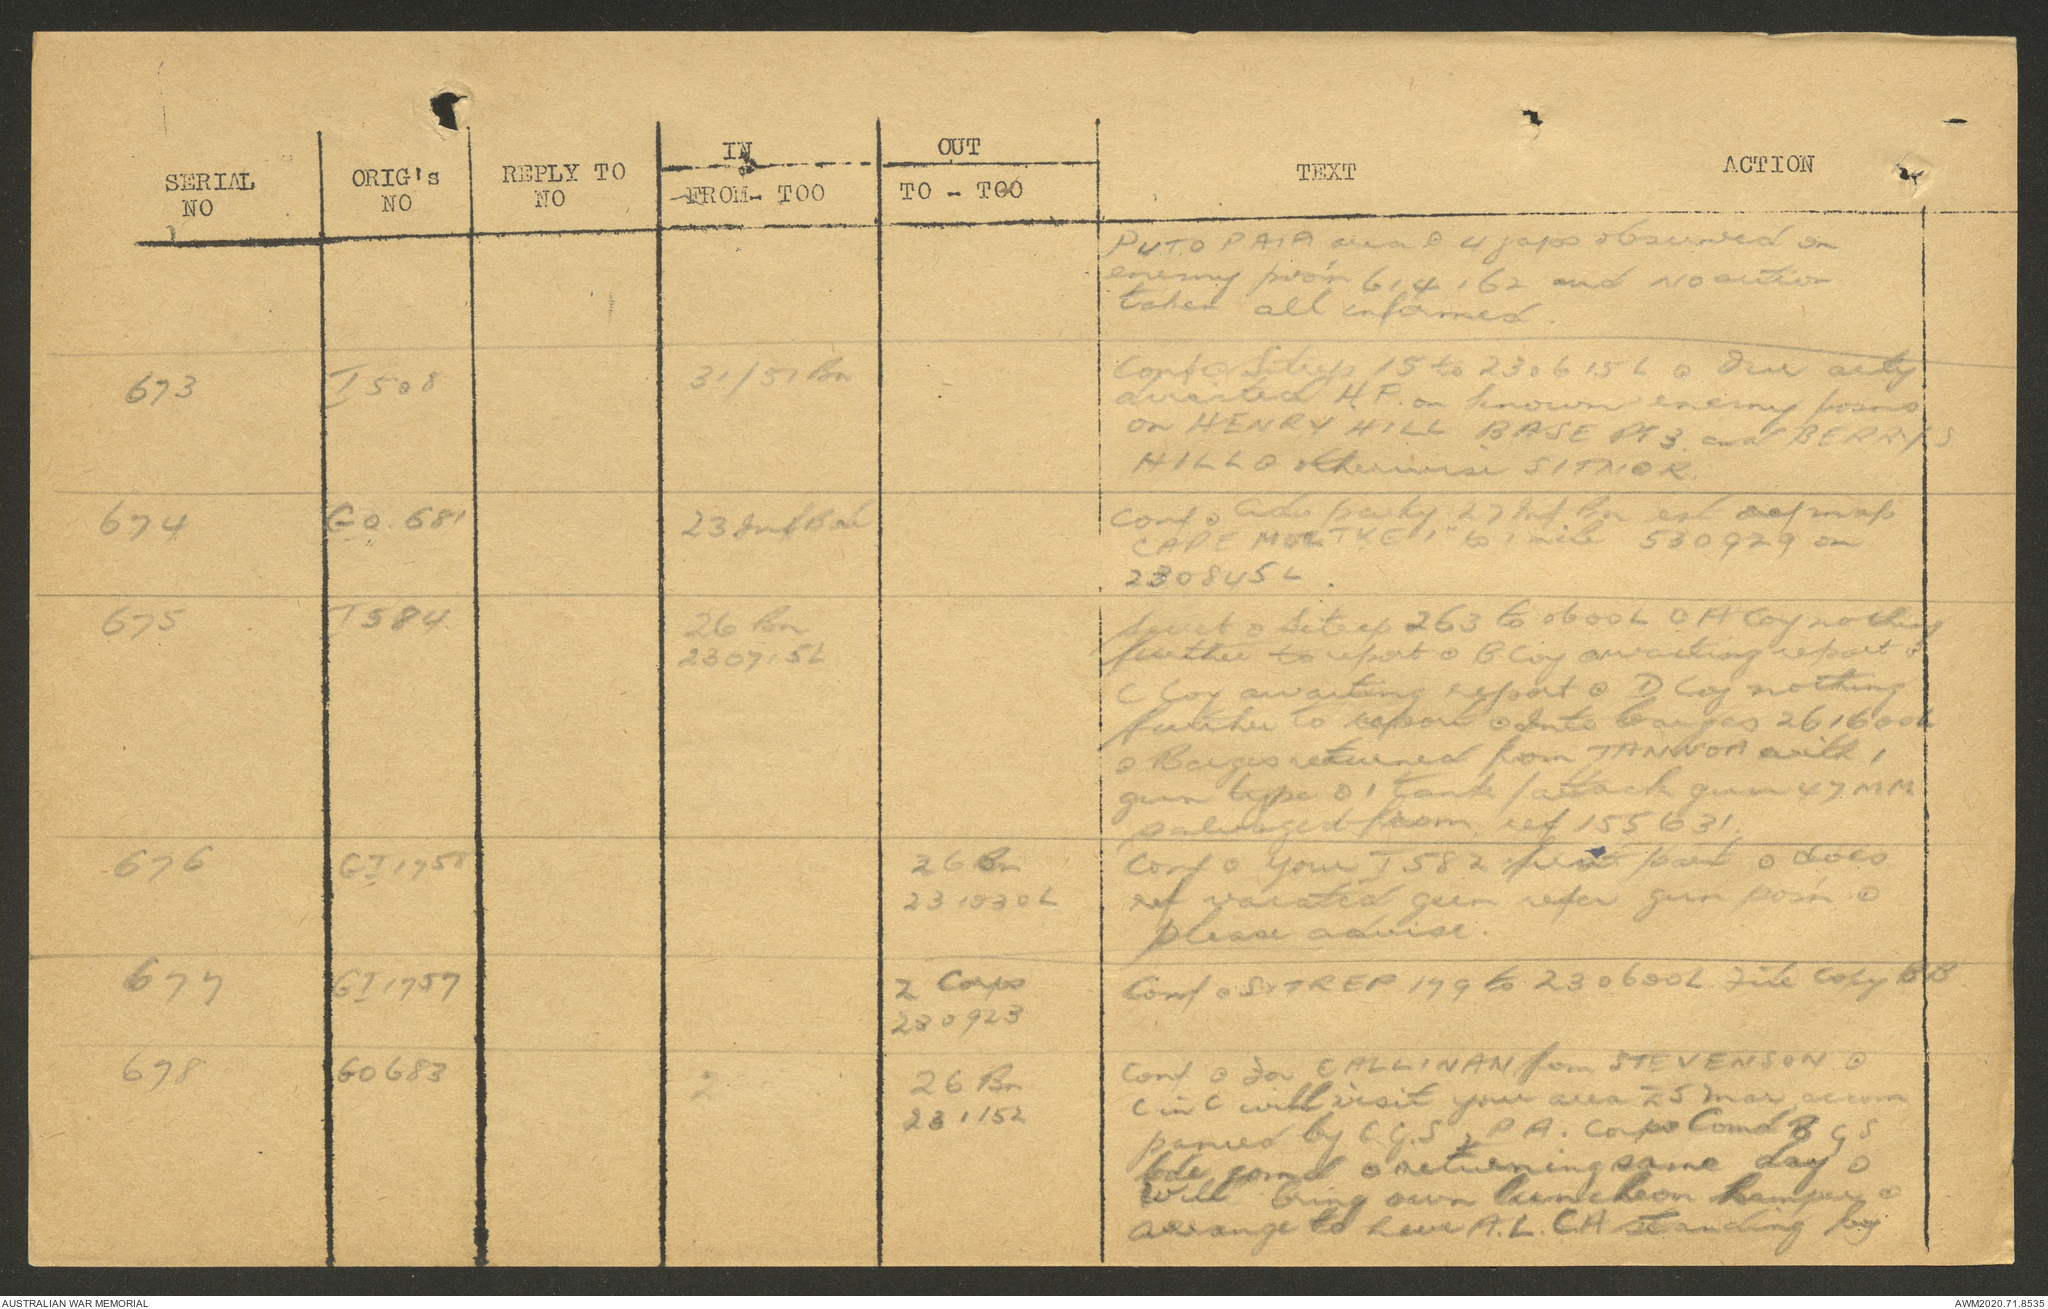 SERIAL NO
ORIG's NO
REPLY TO NO
IN
FROM - TOO
OUT
TO - TOO
TEXT
ACTION
PUTO PAIA area ⊙ 4 japs observed on
enemy pos'n 614162 and no action
taken all informed.
673
I 508
31/51 Bn
Conf ⊙ Sitrep 15 to 230615L ⊙ Our arty
directed H.F. on known enemy posns
on HENRY HILL BASE Pt 3 and BERRY'S
HILL ⊙ otherwise SITNOR.
674
GO. 681
23 Inf Bde
Conf ⊙ Adv party 27 Inf Bn est ref map
CAPE MOLTKE 1" to 1 mile 530929 on
230845L.
675
I 584
26 Bn
230715L
Secret ⊙ Sitrep 263 to 0600L ⊙ A Coy nothing
further to report ⊙ B Coy awaiting report ⊙
C Coy awaiting report ⊙ D Coy nothing
further to report ⊙ barges 261600L
⊙ Barges returned from with 1
gun type ⊙ 1 tank/attack gun 47 MM
salvaged from ref 155631.
676
GI 1758
26 Bn
231030L
Conf ⊙ Your I 582 part ⊙ does
ref vacated gun refer gun posn ⊙
please advise.
677
GI 1757
2 Corps
230923
Conf ⊙ SITREP 179 to 230600L File Copy BB
678
GO 683
2
26 Bn
231152
Conf ⊙ For CALLINAN from STEVENSON ⊙
C in C will visit your area 25 Mar accom
panied by C.G.S, P.A. Corps Comd B G S
bde comd ⊙ returning same day ⊙
Will bring own luncheon hamper ⊙
arrange to have A.L.C.A standing by
AUSTRALIAN WAR MEMORIAL
AWM2020.71.8535